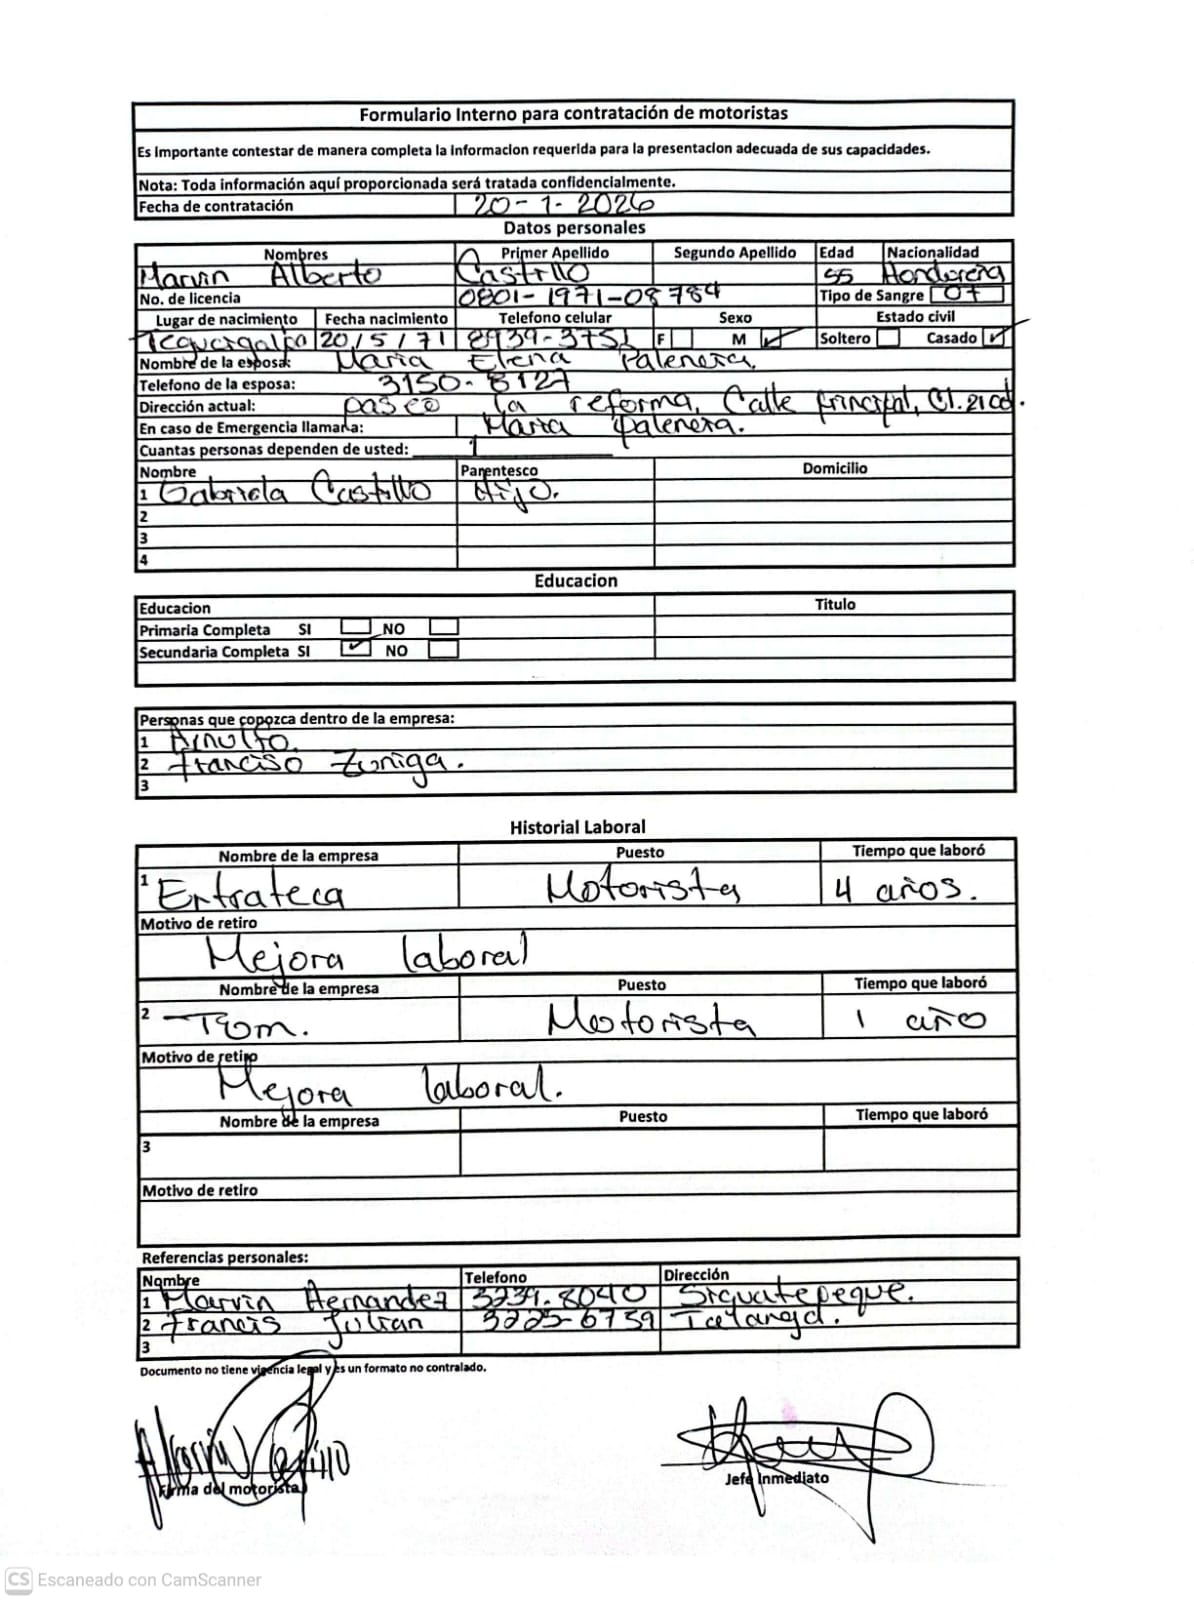 Formulario Interno para contratación de motoristas
Es Importante contestar de manera completa la Informacion requerida para la presentacion adecuada de sus capacidades.
Nota: Toda información aquí proporcionada será tratada confidencialmente.
Fecha de contratación 20-1-2026
Datos personales
Nombres Primer Apellido Segundo Apellido Edad Nacionalidad
Marvin Alberto Castillo 55 Hondureña
No. de licencia 0801-1971-08784 Tipo de Sangre O+
Lugar de nacimiento Fecha nacimiento Telefono celular Sexo Estado civil
Tegucigalpa 20/5/71 8939-3751 F M Soltero Casado
Nombre de la esposa: Maria Elena
Telefono de la esposa: 3150-8127
Dirección actual: paseo la reforma, Calle principal,
En caso de Emergencia llamar a: Maria
Cuantas personas dependen de usted: 1
Nombre Parentesco Domicilio
1 Gabriela Castillo Hijo.
2
3
4
Educacion
Educacion Titulo
Primaria Completa SI NO
Secundaria Completa SI NO
Personas que conozca dentro de la empresa:
1 Arnulfo.
2 Franciso Zuniga.
3
Historial Laboral
Nombre de la empresa Puesto Tiempo que laboró
1 Entrateca Motorista 4 años.
Motivo de retiro
Mejora laboral
Nombre de la empresa Puesto Tiempo que laboró
2 Motorista 1 año
Motivo de retiro
Mejora laboral.
Nombre de la empresa Puesto Tiempo que laboró
3
Motivo de retiro
Referencias personales:
Nombre Telefono Dirección
1 Marvin Hernandez 3239-8040 Siguatepeque.
2 Francis Julian 3225-6759 Talanga.
3
Documento no tiene vigencia legal y es un formato no contralado.
Marvin Castillo
Firma del motorista
Jefe Inmediato
CS Escaneado con CamScanner